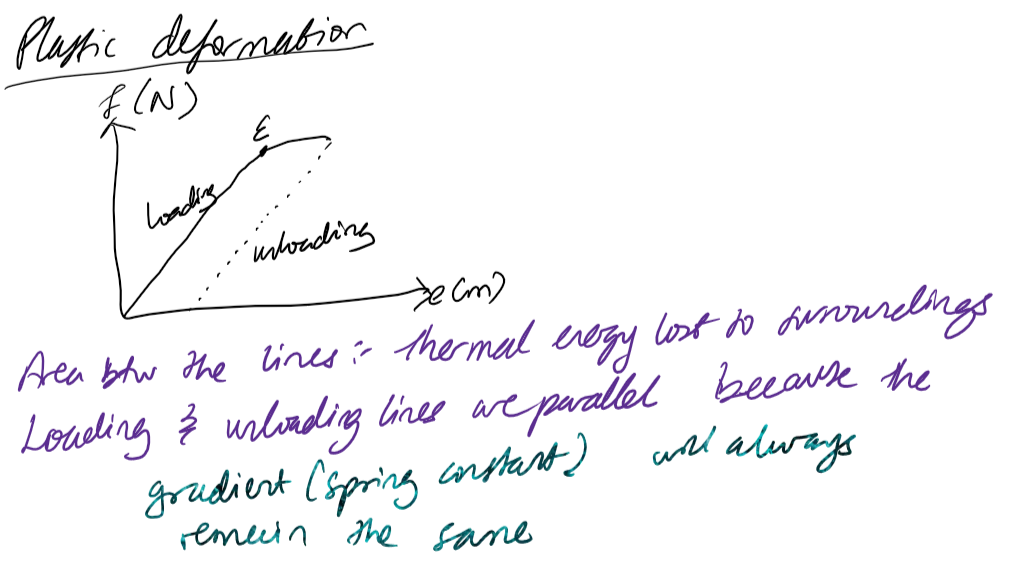 Plastic deformation
F (N)
E
Loading
unloading
e (m)
Area btw the lines :- thermal energy lost to surroundings
Loading & unloading lines are parallel because the
gradient (spring constant) will always
remain the same